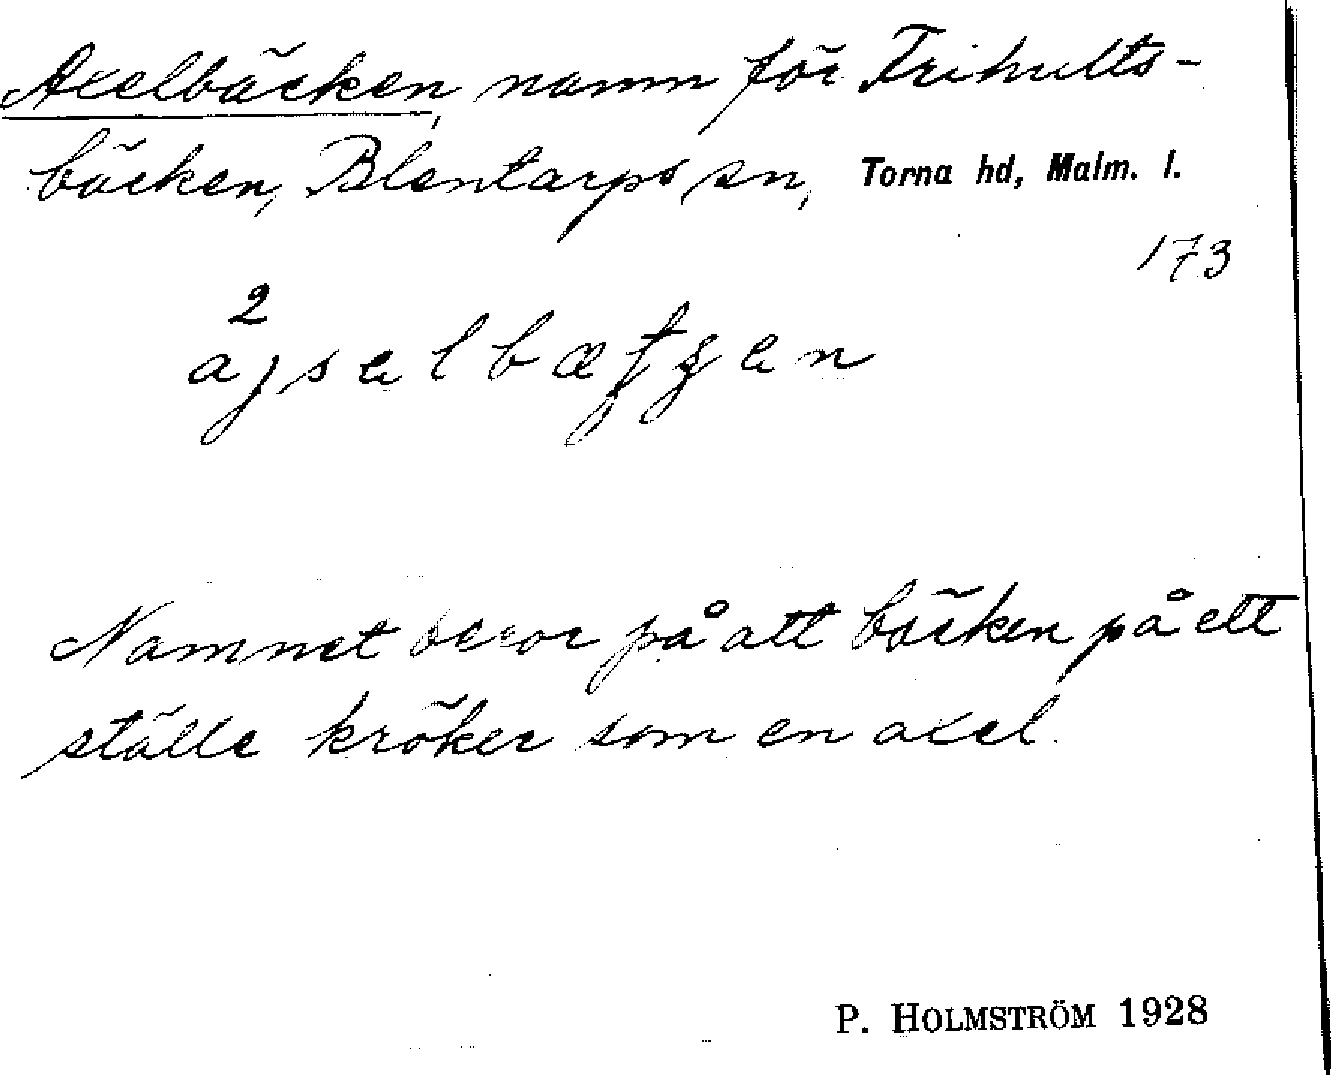 Axelbäcken, namn för Trihults-
bäcken, Blentarps sn, Torna hd, Malm. l.
173
2
Namnet beror på att bäcken på ett
ställe kröker som en axel.
P. HOLMSTRÖM 1928